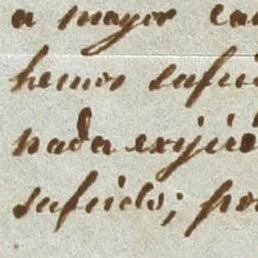 a mayor ca
hemos sufri
nada exijió
sufrido; po